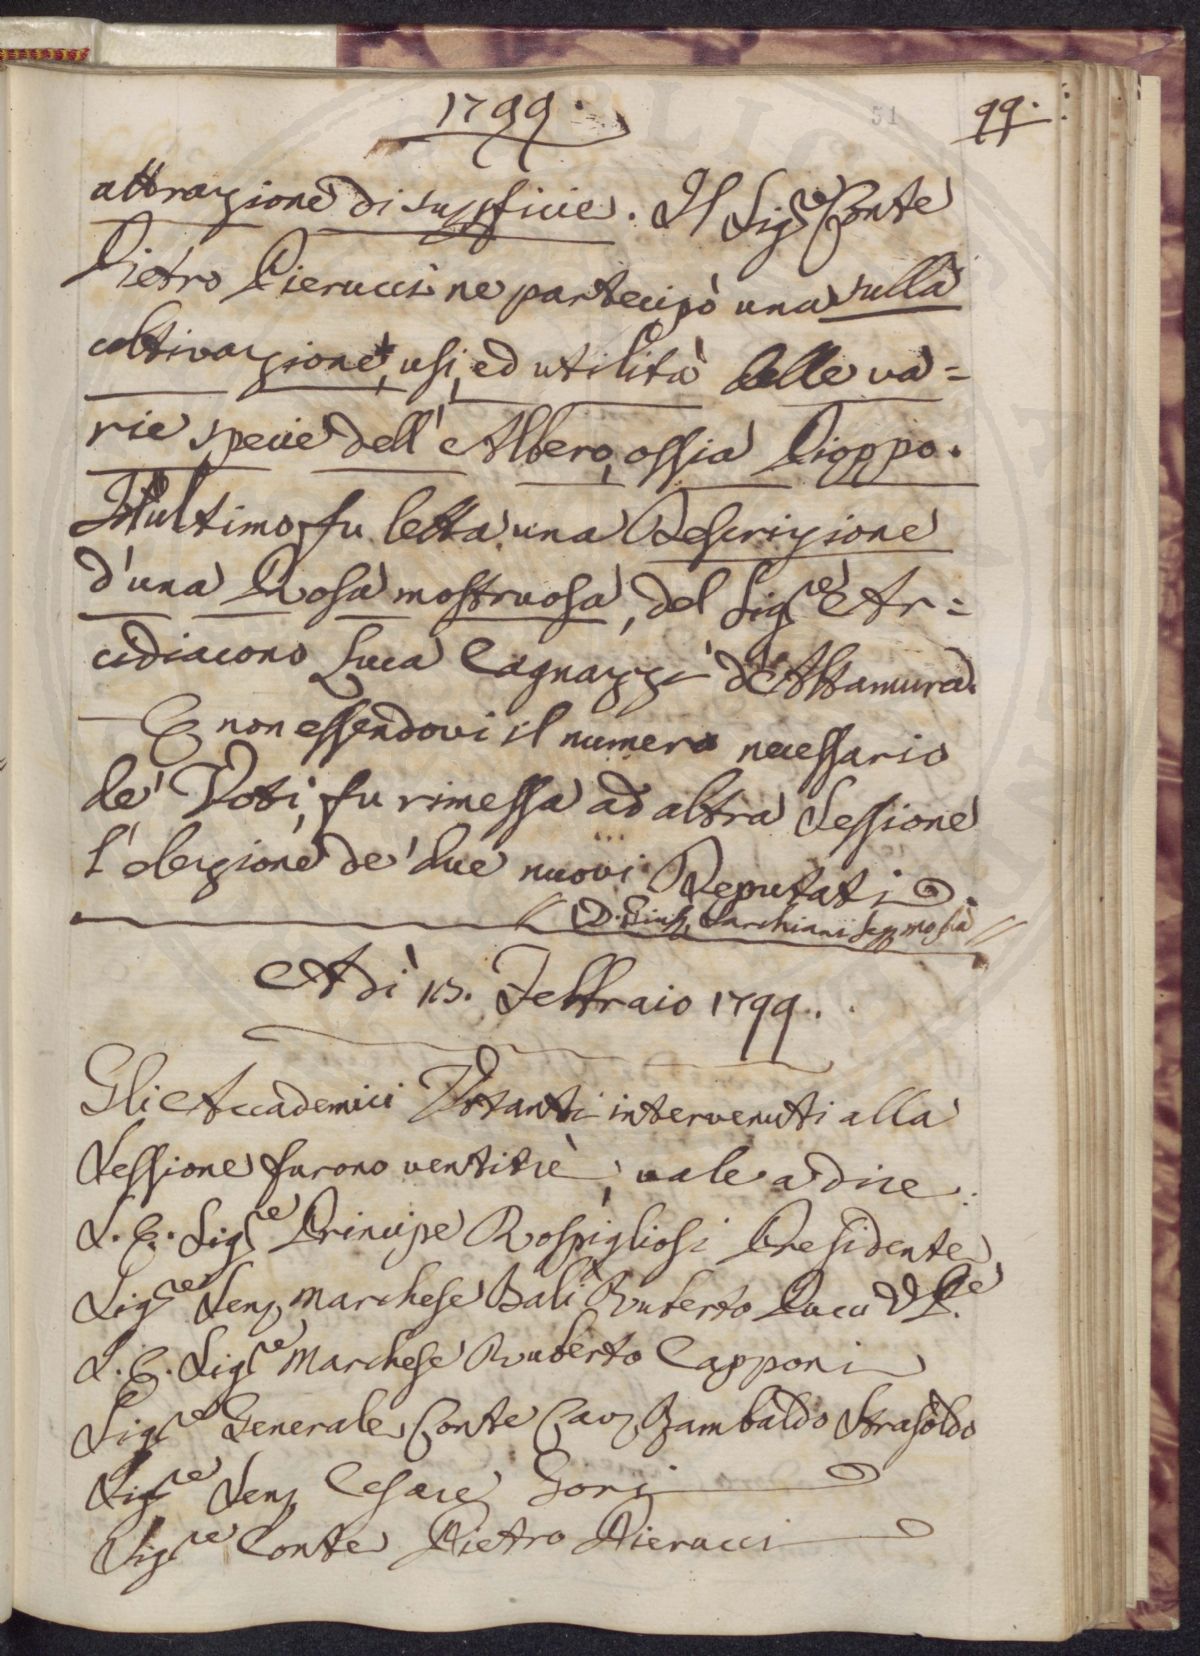 1799.
51
99.
attrazione di suppficie. Il Sig.re Conte
Pietro Pierucci ne partecipò una sulla
coltivazione, usi, ed utilità delle va=
rie specie dell' Albero, ossia Pioppo.
In ultimo fu letta una Descrizione
d'una Rosa mostruosa, del Sig.re Ar=
cidiacono Luca Cagnazzi d'Altamura.
E non essendovi il numero necessario
de' Voti, fu rimessa ad altra Sessione
l'elezione de' due nuovi Deputati.
D. Gius. Sarchiani Seg. mo pia
Adì 13. Febbraio 1799.
Gli Accademici Votanti intervenuti alla
Sessione furono ventitrè, vale a dire:
S. E. Sig.re Principe Rospigliosi Presidente
Sig.re Sen. Marchese Balì Ruberto Pucci V. P.te
S. E. Sig.re Marchese Ruberto Capponi
Sig.re Generale Conte Cav. Zambaldo Strasoldo
Sig.re Sen. Cesare Gori
Sig.re Conte Pietro Pierucci